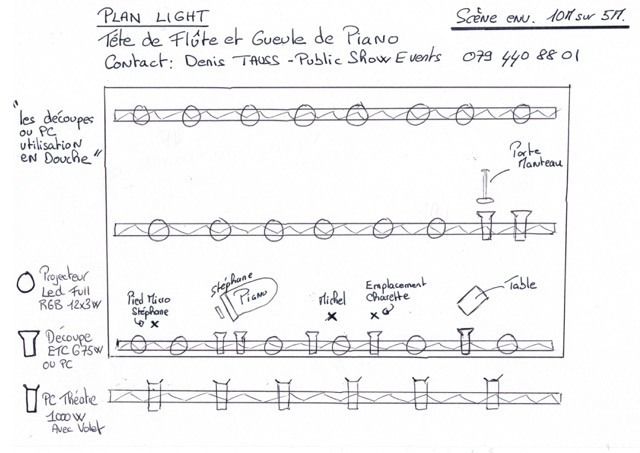 PLAN LIGHT
Scène env. 10M sur 5M.
Tête de Flûte et Gueule de Piano
Contact: Denis TAUSS - Public Show Events 079 440 88 01
"les découpes
ou PC
utilisation
en Douche"
Porte
Manteau
Projecteur
Led Full
RGB 12x3W
Pied Micro
Stéphane
Stéphane
PIANO
Michel
Emplacement
Charette
Table
Découpe
ETC 675W
ou PC
PC Théatre
1000W
Avec Volet